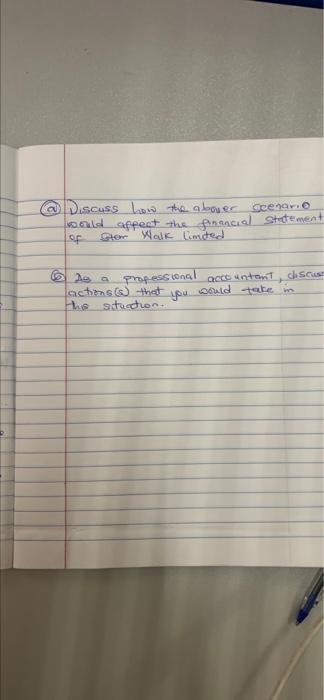 (a) Discuss how the above scenario
would affect the financial statement
of Star Walk Limited
(b) As a professional accountant, discuss
actions(s) that you would take in
the situation.